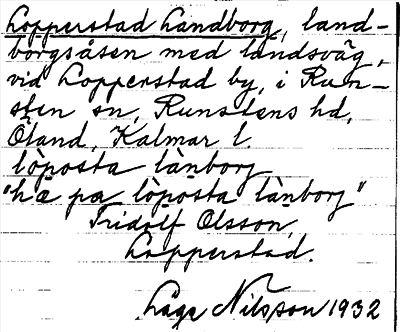 Lopperstad Landborg, land-
borgsåsen med landsväg,
vid Lopperstad by, i Run-
sten sn, Runstens hd,
Öland, Kalmar l.
löposta lànborj
"hæ pa löposta lànborj"
Fridolf Olsson,
Lopperstad.
Låge Nilsson 1932